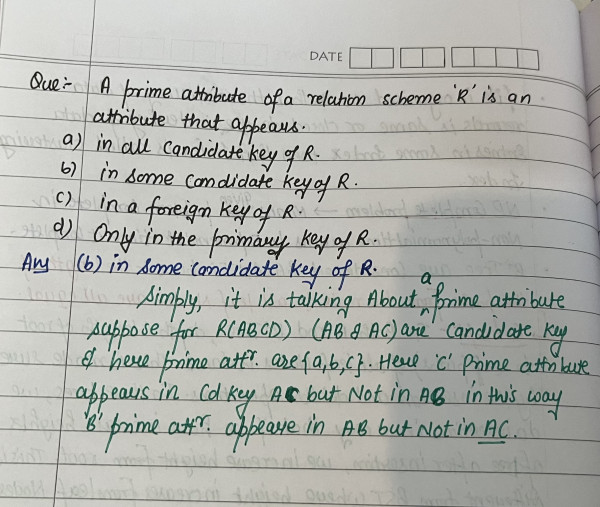 DATE
Que:- A prime attribute of a relation scheme 'R' is an
attribute that appears.
a) in all Candidate key of R.
b) in some Candidate key of R.
c) in a foreign key of R.
d) Only in the primary key of R.
Ans (b) in some Candidate key of R.
Simply, it is talking About a prime attribute
suppose for R(ABCD) (AB & AC) are Candidate key
& here prime attr. are {a,b,c}. Here 'C' Prime attribute
appears in Cd key AC but Not in AB in this way
'B' prime attr. appeare in AB but Not in AC.